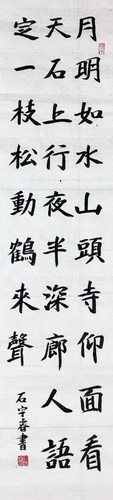 月明如水山頭寺仰面看
天石上行夜半深廊人語
定一枝松動鶴來聲
石宇睿書